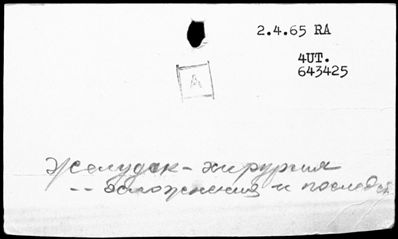 2.4.65 RA
4UT.
643425
A
Желудок - хирургия
-- осложнения и последст.